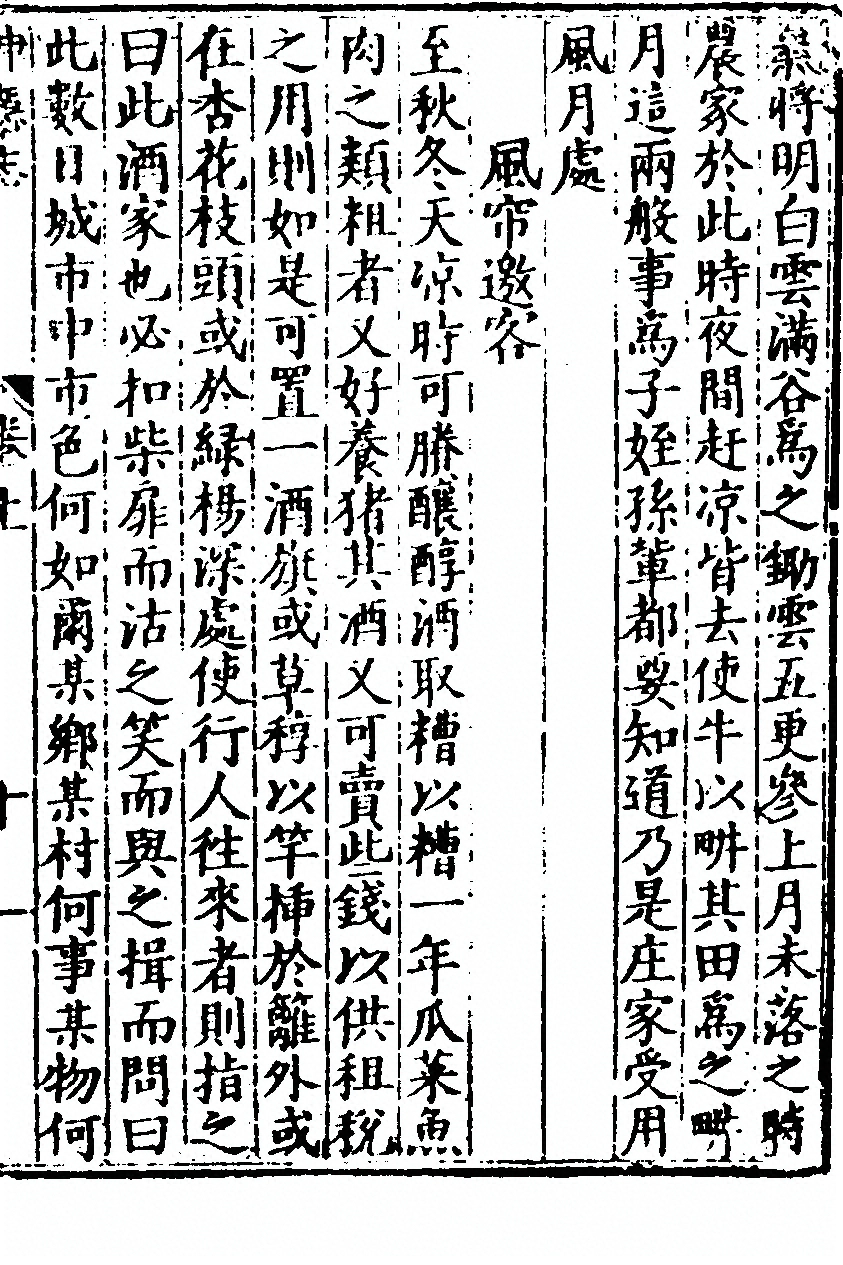 將明白雲滿谷爲之鋤雲五更參上月未落之時
農家於此時夜間赶凉皆去使牛以畊其田爲之畊
月這兩般事爲子姪孫輩都要知道乃是庄家受用
風月處
風帘邀客
至秋冬天凉時可勝釀醇酒取糟以糟一年瓜菜魚
肉之類粗者又好養猪其酒又可賣此錢以供租稅
之用則如是可置一酒旗或草稕以竿揷於籬外或
在杏花枝頭或於緑楊深處使行人徃來者則指之
曰此酒家也必扣柴扉而沽之笑而與之揖而問曰
此數日城市中市色何如爾某鄉某村何事某物何